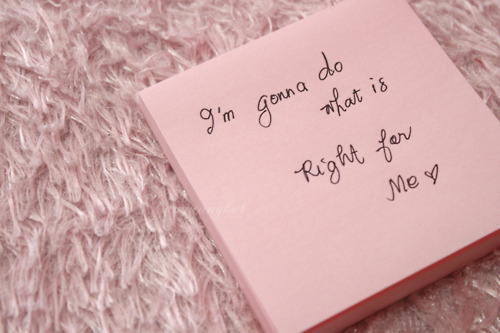 I'm gonna do
what is
Right for
Me ♡